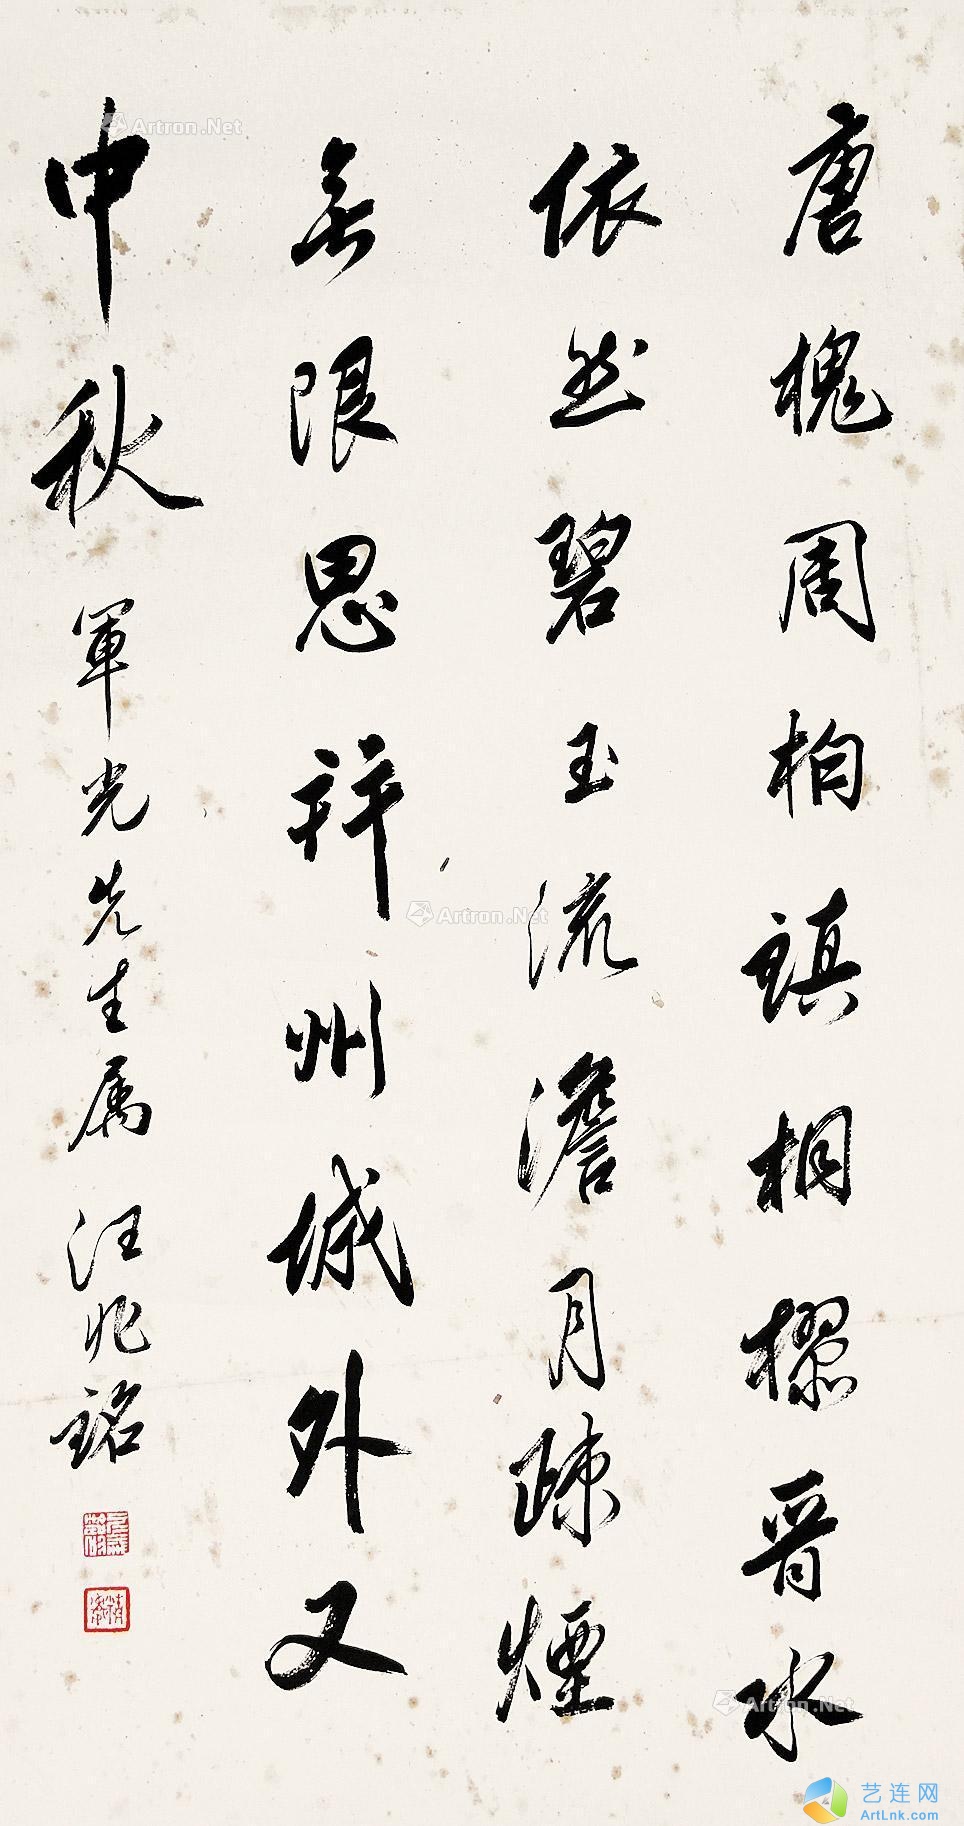 唐槐周柏鎮相樛晋水
依然碧玉流澹月疎煙
無限思幷州城外又
中秋 軍光先生属 汪兆銘
精衛
Artron.Net
Artron.Net
Artron.Net
艺连网
ArtLnk.com